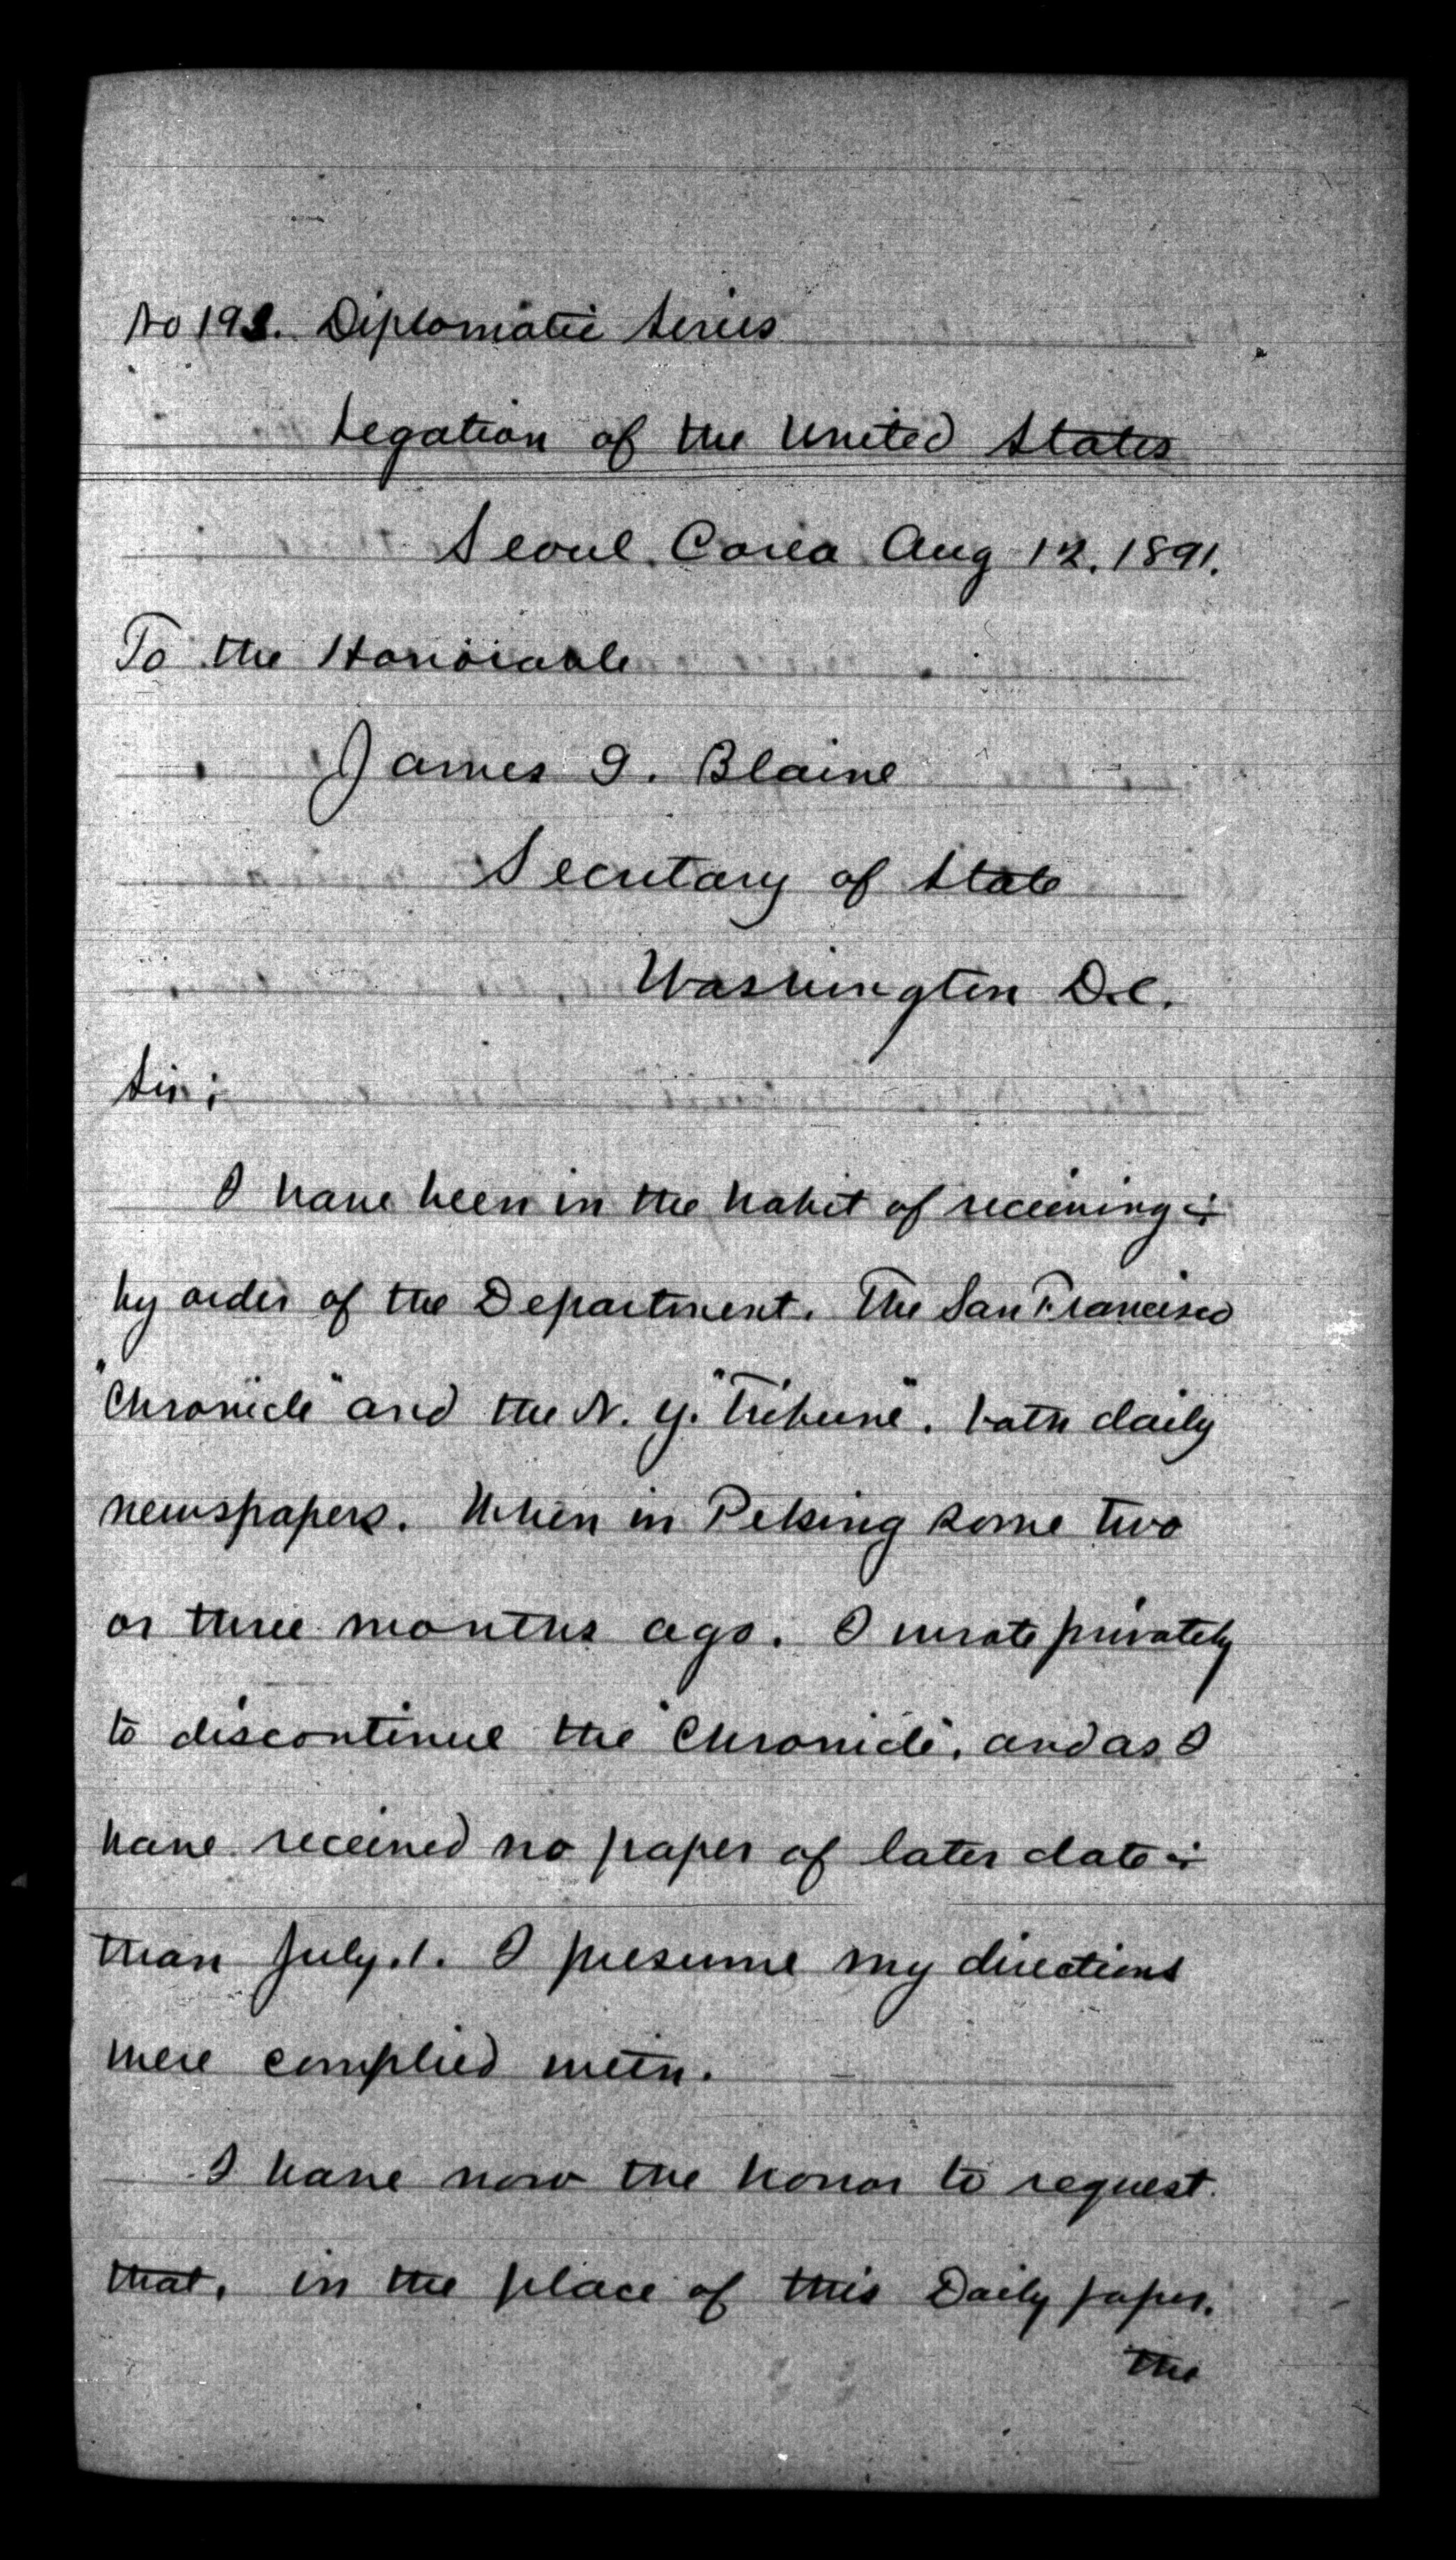 No 193. Diplomatic Series
Legation of the United States
Seoul, Corea Aug 12. 1891.
To the Honorable
James G. Blaine
Secretary of State
Washington D.C.
Sir;
I have been in the habit of receiving
by order of the Department, The San Francisco
"Chronicle" and the N. Y. "Tribune", both daily
newspapers. When in Peking some two
or three months ago, I wrote privately
to discontinue the "Chronicle", and as I
have received no paper of later date
than July 1. I presume my directions
were complied with.
I have now the honor to request
that, in the place of this Daily paper,
the